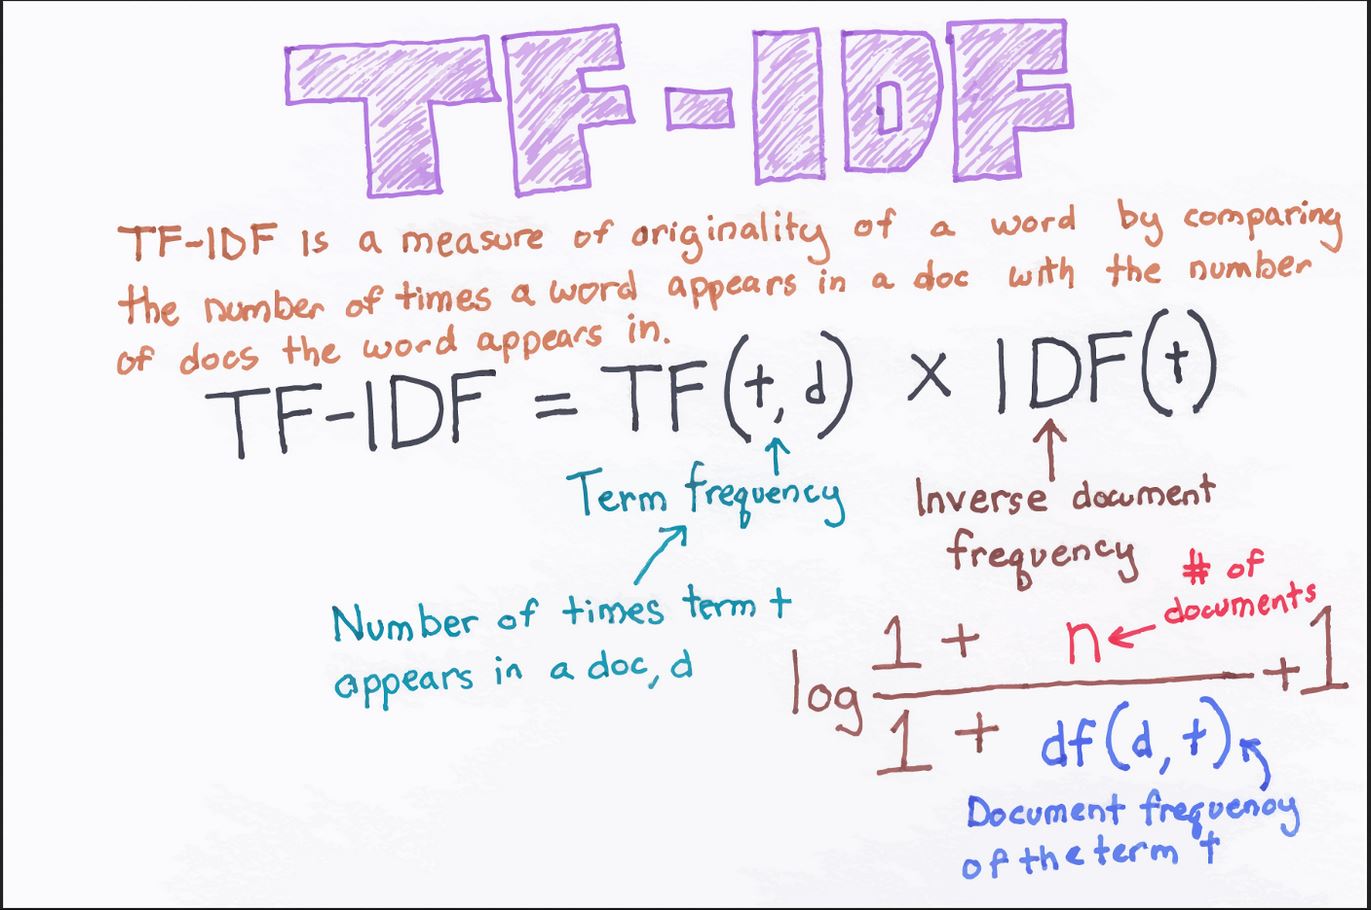 TF-IDF
TF-IDF is a measure of originality of a word by comparing
the number of times a word appears in a doc with the number
of docs the word appears in.
TF-IDF = TF(t, d) × IDF(t)
Term frequency
Inverse document
frequency
Number of times term t
appears in a doc, d
# of
documents
log 1 + n
1 + df(d, t)
+ 1
Document frequency
of the term t